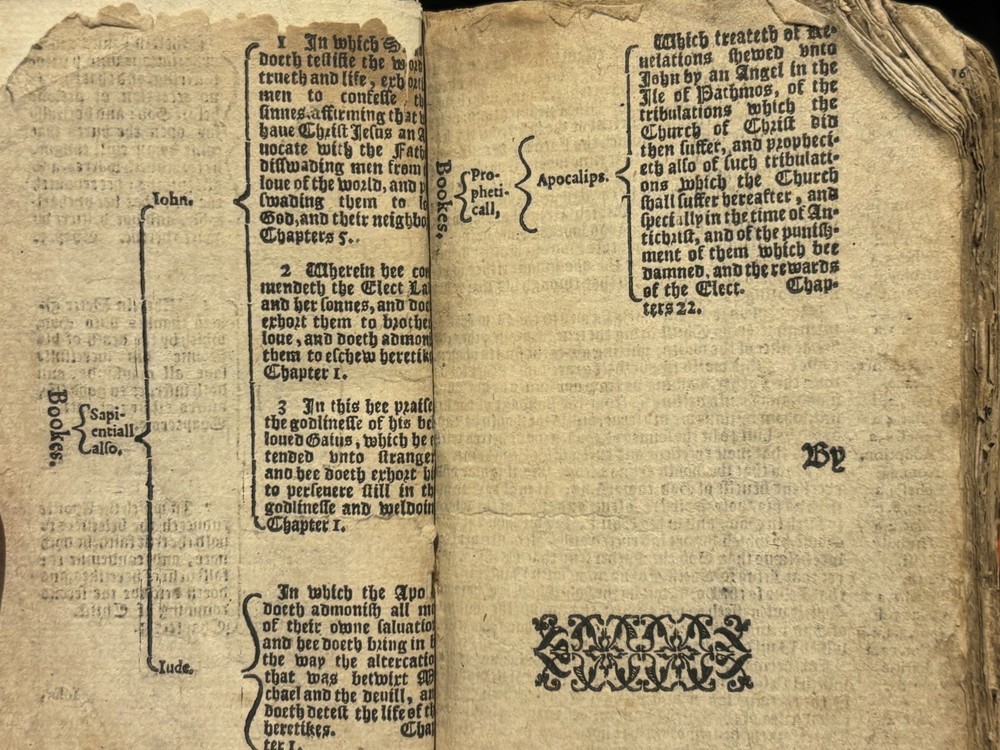 Bookes.
Sapi-
entiall
also.
Iohn.
1 In which S.
doeth testifie the word
trueth and life, exhort
men to confesse
sinnes, affirming that
haue Christ Jesus an
uocate with the Fath
disswading men from
loue of the world, and
swading them to
God, and their neighbo
Chapters 5.
2 Wherein hee com
mendeth the Elect La
and her sonnes, and doe
exhort them to brothe
loue, and doeth admon
them to eschew heretik
Chapter 1.
3 In this hee praise
the godlinesse of his be
loued Gaius, which he
tended vnto stranger
and hee doeth exhort
to perseuere still in th
godlinesse and weldoin
Chapter 1.
Iude.
In which the Apo
doeth admonish all
of their owne saluatio
and hee doeth bring in
the way the altercatio
that was betwixt
chael and the deuill, an
doeth detest the life of th
heretikes. Cha
ter 1.
Bookes.
Pro-
pheti-
call,
Apocalips.
Which treateth of Re-
uelations shewed vnto
John by an Angel in the
Ile of Pathmos, of the
tribulations which the
Church of Christ did
then suffer, and propheci-
eth also of such tribulati-
ons which the Church
shall suffer hereafter, and
specially in the time of An-
tichrist, and of the punish-
ment of them which bee
damned, and the rewards
of the Elect. Chap-
ters 22.
By